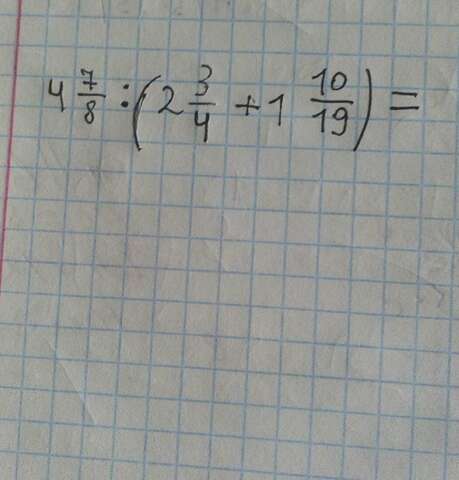 4 7/8 : (2 3/4 + 1 10/19) =